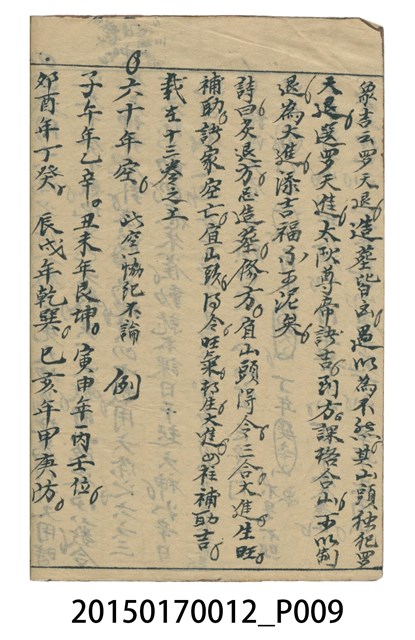 象吉云罗天退造葬皆凶愚以為不然其山頭独犯罗
天退逆罗天進太陽尊帝諸吉到方課格合山可以制
退為大進添吉福不可泥矣
詩曰灸退方忌造葬修方宜山頭得令三合大進生旺
補助訣家空亡宜山頭得令旺氣都生大進山祿補助吉
載在十三卷之上
六十年空 此空協紀不論 例
子午年乙辛 丑未年艮坤 寅申年丙壬位
卯酉年丁癸 辰戌年乾巽 巳亥年甲庚坊
20150170012_P009